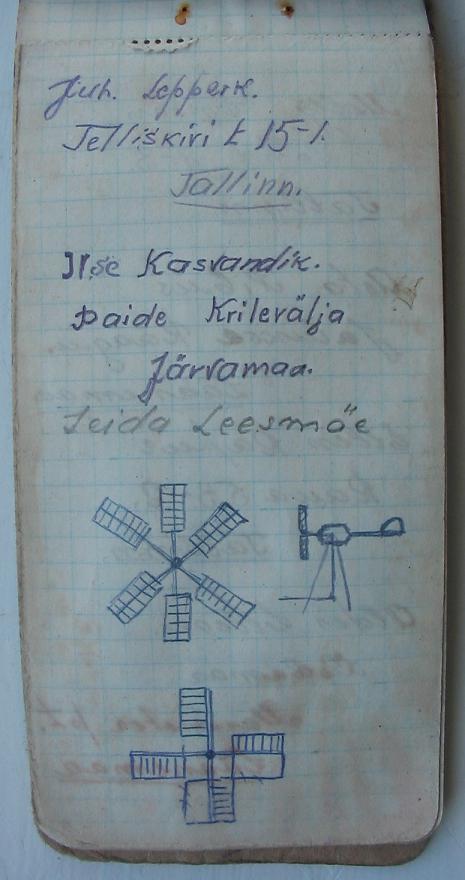 Juh. Leppark.
Telliskivi t 15-1.
Tallinn.
Ilse Kasvandik.
Paide Krilevälja
Järvamaa.
Leida Leesmäe